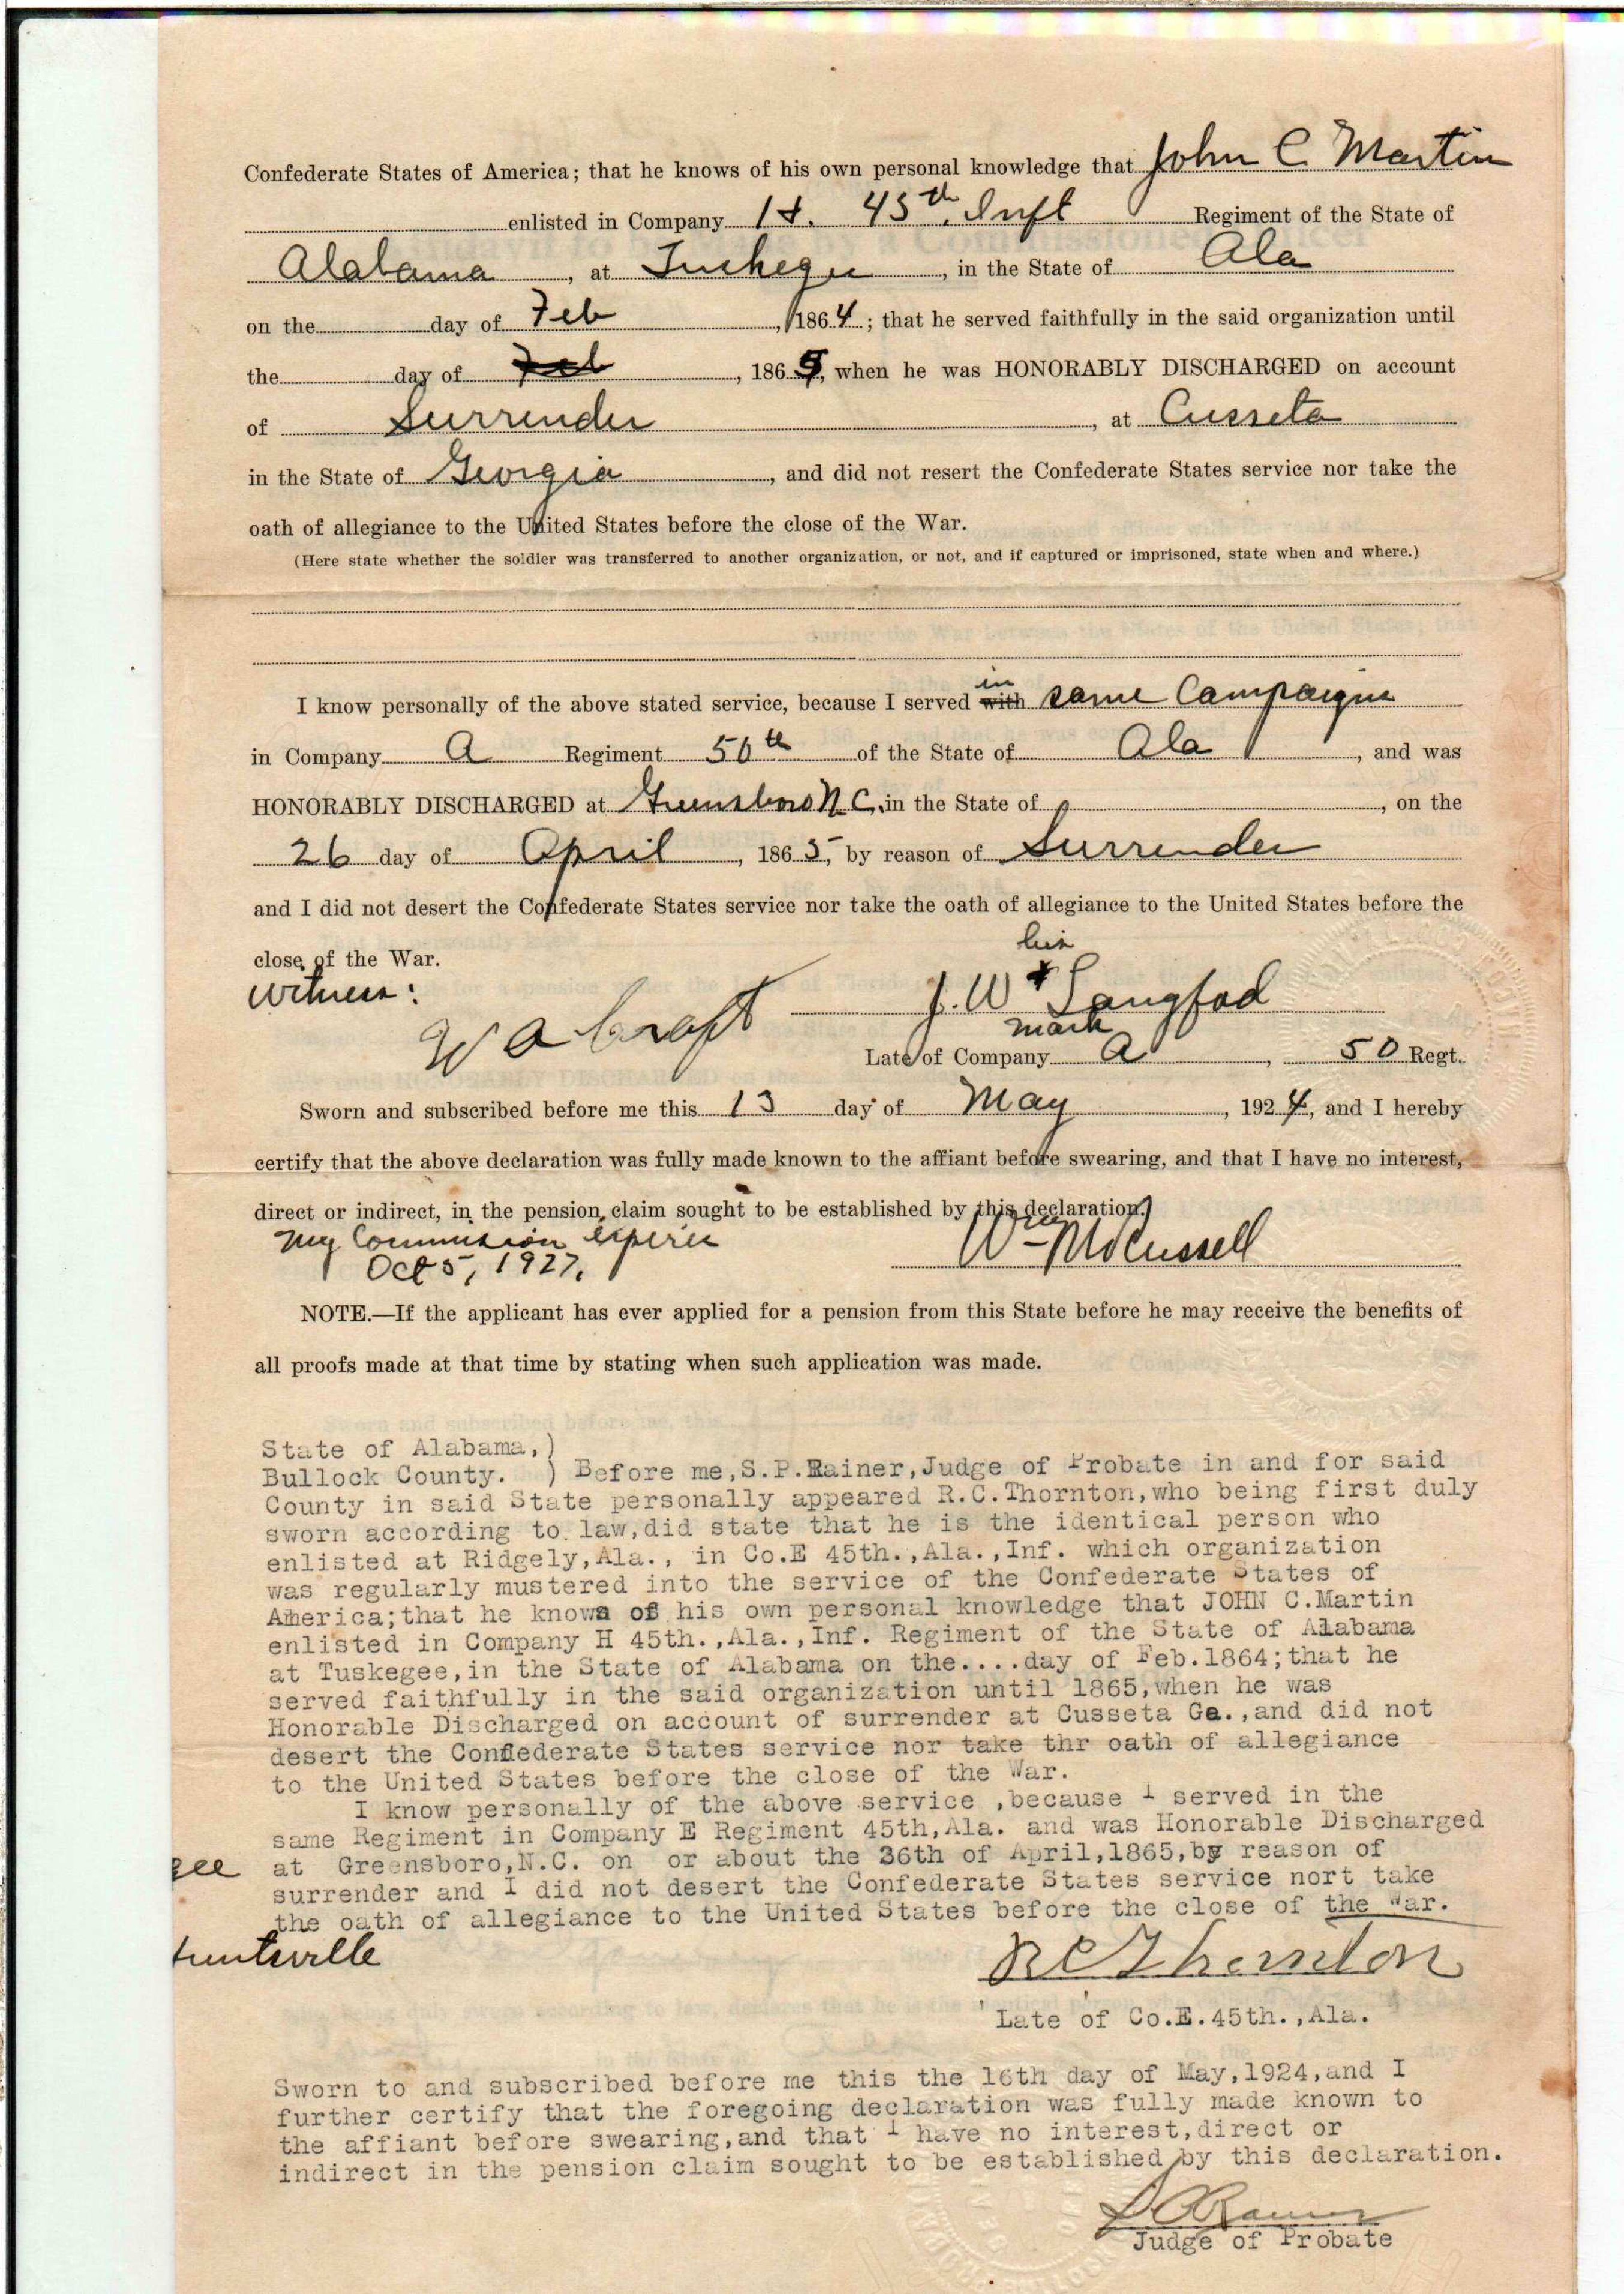 Confederate States of America; that he knows of his own personal knowledge that John C Martin
enlisted in Company H. 45th. Inft Regiment of the State of
Alabama, at Tuskegee, in the State of Ala
on the day of Feb, 1864; that he served faithfully in the said organization until
the day of Feb, 1865, when he was HONORABLY DISCHARGED on account
of Surrender, at Cusseta
in the State of Georgia, and did not resert the Confederate States service nor take the
oath of allegiance to the United States before the close of the War.
(Here state whether the soldier was transferred to another organization, or not, and if captured or imprisoned, state when and where.)
in
I know personally of the above stated service, because I served with same Campaign
in Company A Regiment 50th of the State of Ala, and was
HONORABLY DISCHARGED at Greensboro N.C., in the State of, on the
26 day of April, 1865, by reason of Surrender
and I did not desert the Confederate States service nor take the oath of allegiance to the United States before the
close of the War.
his
Witness:
W A Craft
J. W x Langfod
mark
Late of Company A, 50 Regt.
Sworn and subscribed before me this 13 day of May, 1924, and I hereby
certify that the above declaration was fully made known to the affiant before swearing, and that I have no interest,
direct or indirect, in the pension claim sought to be established by this declaration.
My Commission Expires
Oct 5, 1927.
Wm
NOTE.—If the applicant has ever applied for a pension from this State before he may receive the benefits of
all proofs made at that time by stating when such application was made.
State of Alabama,)
Bullock County. ) Before me,S.P.Rainer,Judge of Probate in and for said
County in said State personally appeared R.C.Thornton,who being first duly
sworn according to law,did state that he is the identical person who
enlisted at Ridgely,Ala., in Co.E 45th.,Ala.,Inf. which organization
was regularly mustered into the service of the Confederate States of
America;that he knows of his own personal knowledge that JOHN C.Martin
enlisted in Company H 45th.,Ala.,Inf. Regiment of the State of Alabama
at Tuskegee,in the State of Alabama on the....day of Feb.1864;that he
served faithfully in the said organization until 1865,when he was
Honorable Discharged on account of surrender at Cusseta Ga.,and did not
desert the Confederate States service nor take thr oath of allegiance
to the United States before the close of the War.
I know personally of the above service ,because I served in the
same Regiment in Company E Regiment 45th,Ala. and was Honorable Discharged
gee at Greensboro,N.C. on or about the 26th of April,1865,by reason of
surrender and I did not desert the Confederate States service nort take
the oath of allegiance to the United States before the close of the War.
untsville
R C Thornton
Late of Co.E.45th.,Ala.
Sworn to and subscribed before me this the 16th day of May,1924,and I
further certify that the foregoing declaration was fully made known to
the affiant before swearing,and that I have no interest,direct or
indirect in the pension claim sought to be established by this declaration.
Judge of Probate